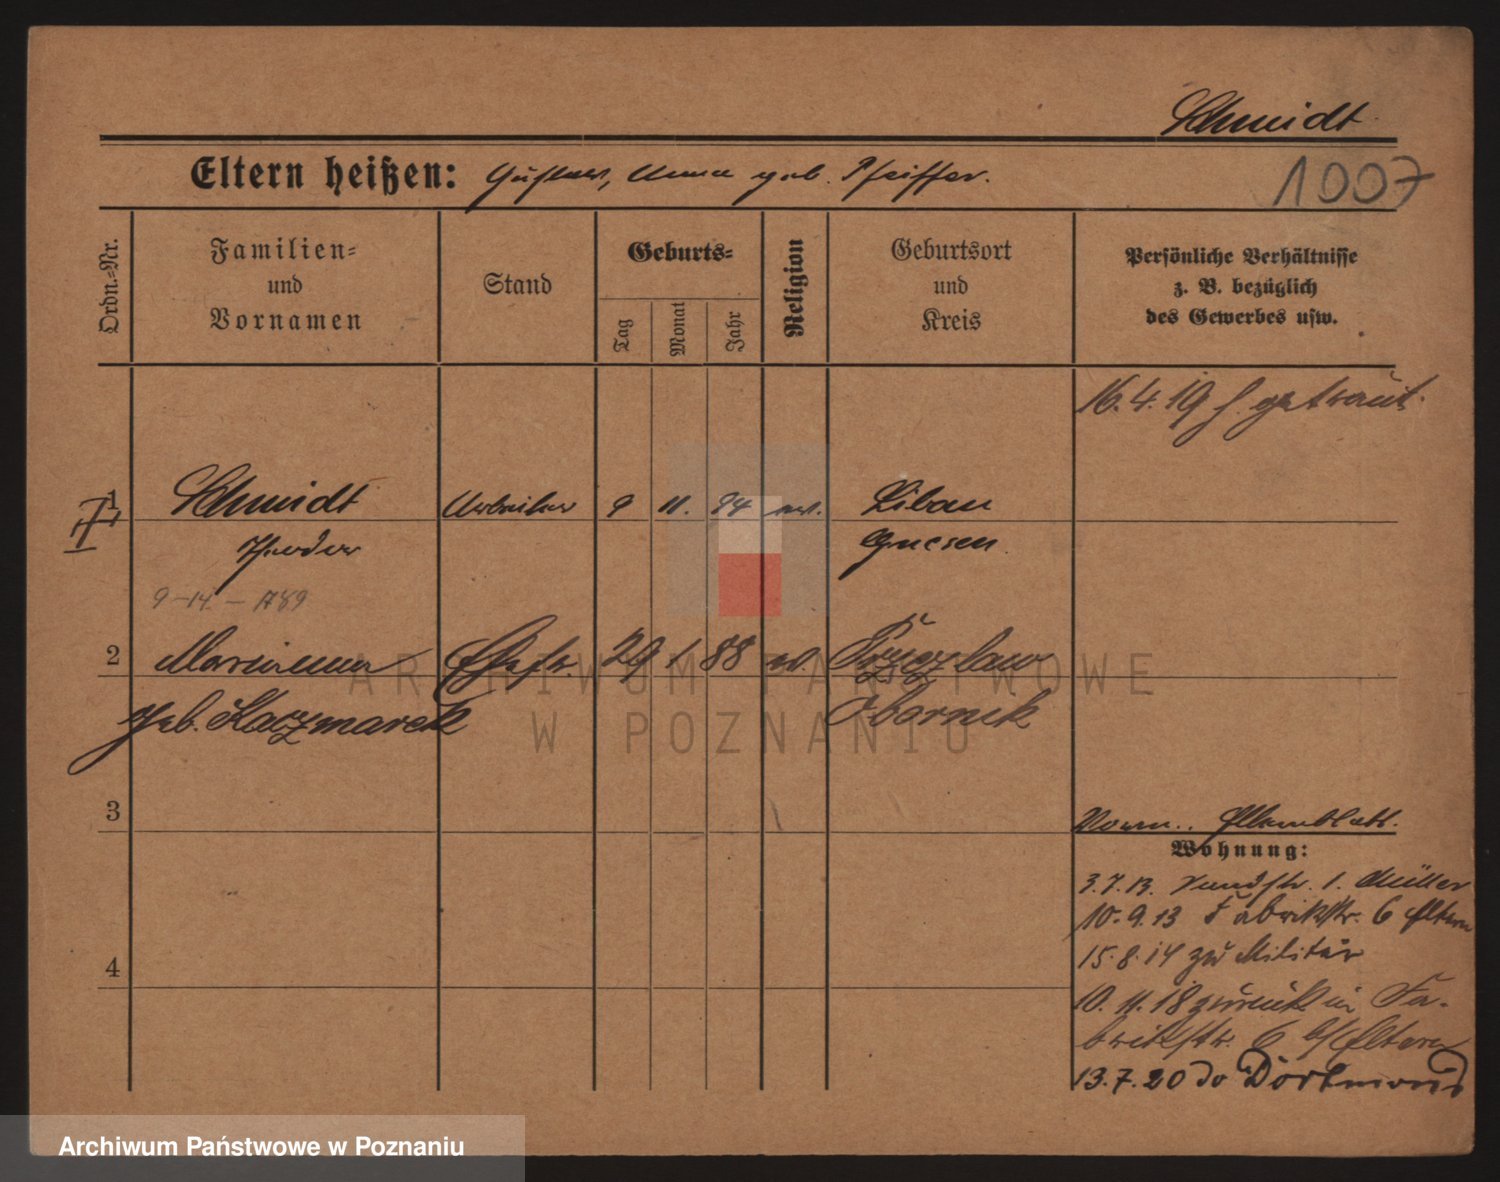 Schmidt
Eltern heißen: Gustav, Anna geb. Pfeiffer.
1007
Ordn.-Nr.
Familien- und Vornamen
Stand
Geburts-
Tag
Monat
Jahr
Religion
Geburtsort und Kreis
Persönliche Verhältnisse z. B. bezüglich des Gewerbes usw.
16.4.19 h. getraut.
1 Schmidt Arbeiter 9 11. 94 ev. Libau
Theodor Gnesen
9-14-1789
2 Marianna Ehefr. 29 1 88
geb. Kaczmarek Obornik
3
Elternblatt.
Wohnung:
3.7.13. 1. Müller
10.9.13 Fabrikstr. 6 Eltern
4
15.8.14 zu Militär
10.11.18 zurück in Fa-
brikstr. 6 b/Eltern
13.7.20 do Dortmund
ARCHIWUM PAŃSTWOWE
W POZNANIU
Archiwum Państwowe w Poznaniu